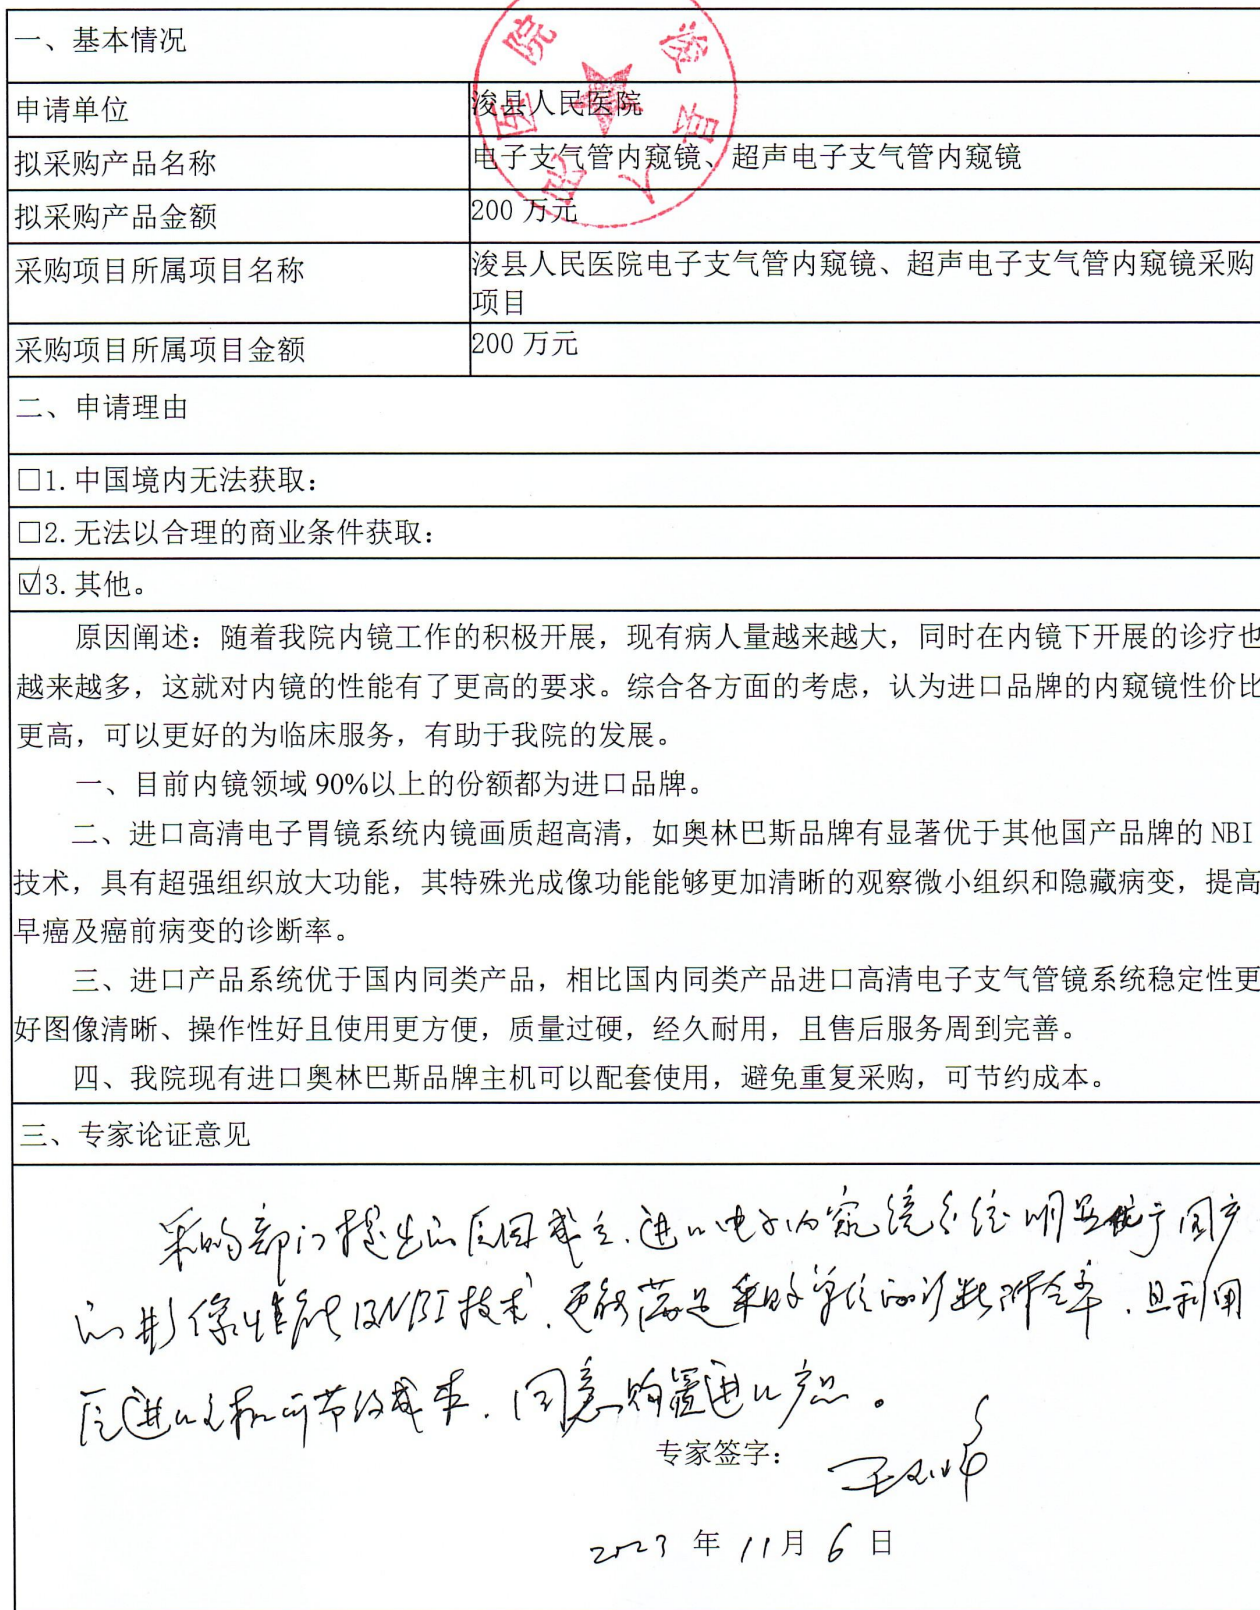 一、基本情况
申请单位
浚县人民医院
拟采购产品名称
电子支气管内窥镜、超声电子支气管内窥镜
拟采购产品金额
200 万元
采购项目所属项目名称
浚县人民医院电子支气管内窥镜、超声电子支气管内窥镜采购
项目
采购项目所属项目金额
200 万元
二、申请理由
□1.中国境内无法获取：
□2.无法以合理的商业条件获取：
☑3.其他。
原因阐述：随着我院内镜工作的积极开展，现有病人量越来越大，同时在内镜下开展的诊疗也
越来越多，这就对内镜的性能有了更高的要求。综合各方面的考虑，认为进口品牌的内窥镜性价比
更高，可以更好的为临床服务，有助于我院的发展。
一、目前内镜领域 90%以上的份额都为进口品牌。
二、进口高清电子胃镜系统内镜画质超高清，如奥林巴斯品牌有显著优于其他国产品牌的 NBI
技术，具有超强组织放大功能，其特殊光成像功能能够更加清晰的观察微小组织和隐藏病变，提高
早癌及癌前病变的诊断率。
三、进口产品系统优于国内同类产品，相比国内同类产品进口高清电子支气管镜系统稳定性更
好图像清晰、操作性好且使用更方便，质量过硬，经久耐用，且售后服务周到完善。
四、我院现有进口奥林巴斯品牌主机可以配套使用，避免重复采购，可节约成本。
三、专家论证意见
采购部门提出的原因成立，进口电子内窥镜系统明显优于国产
的影像性能及NBI技术，更能满足采购单位的诊断符合率，且利用
原进口主机可节约成本，同意购置进口产品。
专家签字：
2023 年 11月 6 日
浚县人民医院